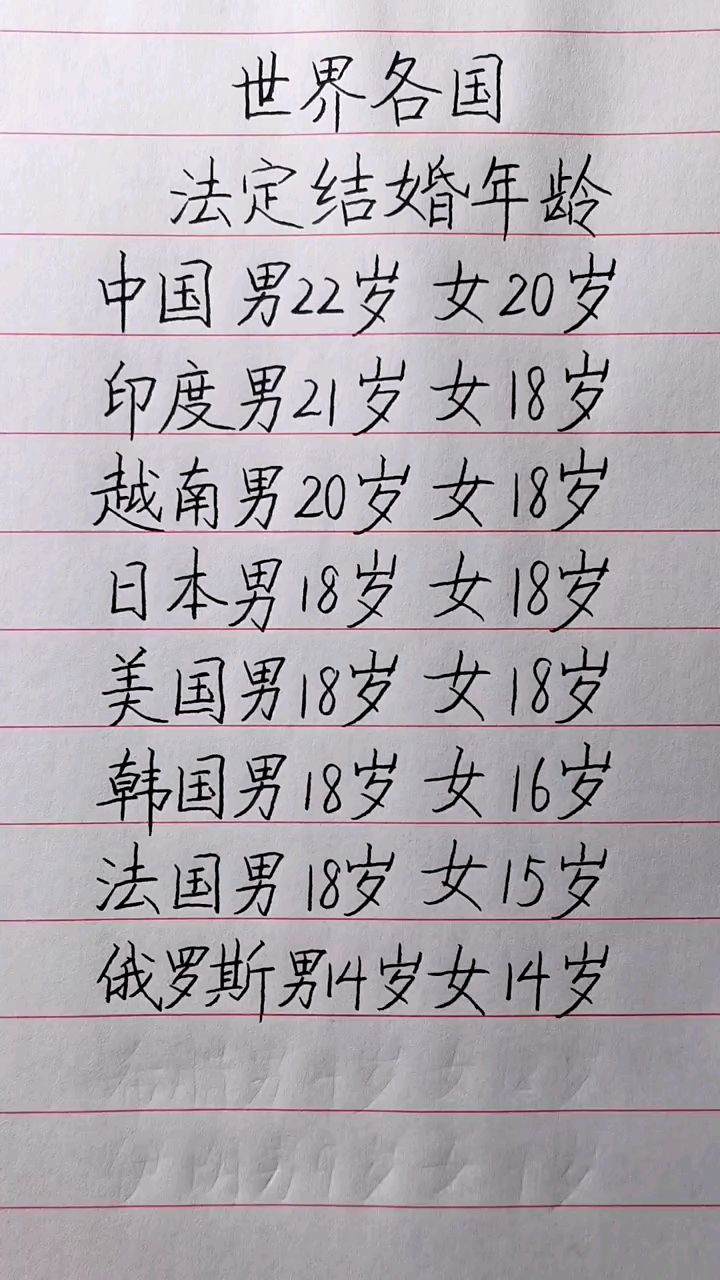 世界各国
法定结婚年龄
中国 男22岁 女20岁
印度男21岁 女18岁
越南男20岁 女18岁
日本男18岁 女18岁
美国男18岁 女18岁
韩国男18岁 女16岁
法国男18岁 女15岁
俄罗斯男14岁女14岁